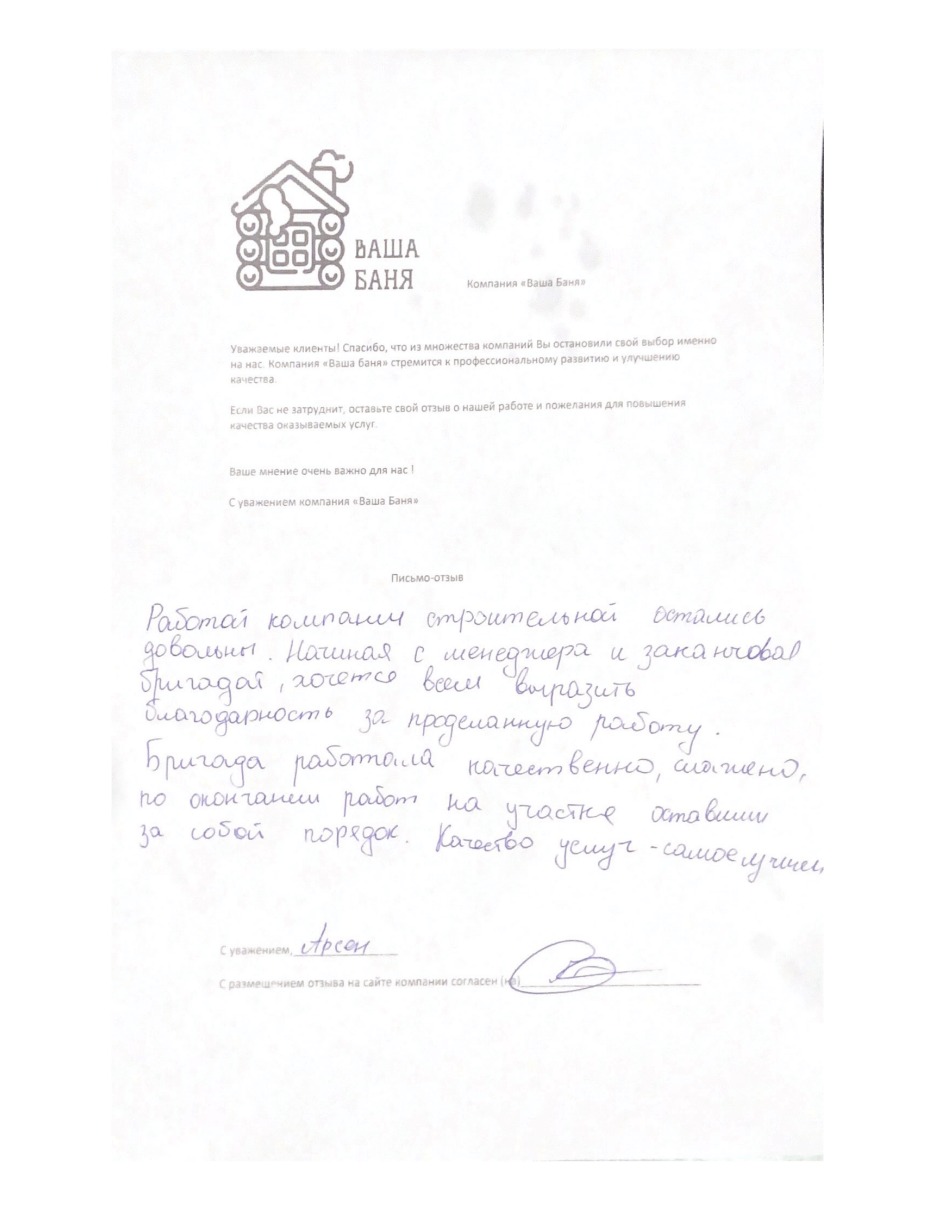 ВАША
БАНЯ
Компания «Ваша Баня»
Уважаемые клиенты! Спасибо, что из множества компаний Вы остановили свой выбор именно
на нас. Компания «Ваша баня» стремится к профессиональному развитию и улучшению
качества.
Если Вас не затруднит, оставьте свой отзыв о нашей работе и пожелания для повышения
качества оказываемых услуг.
Ваше мнение очень важно для нас !
С уважением компания «Ваша Баня»
Письмо-отзыв
Работой компании строительной остались
довольны. Начиная с менеджера и
бригадой, хочется всем выразить
благодарность за проделанную работу.
Бригада работала качественно, слажено,
по окончании работ на участке оставили
за собой порядок. Качество услуг -
С уважением, Арсен
С размещением отзыва на сайте компании согласен (на)